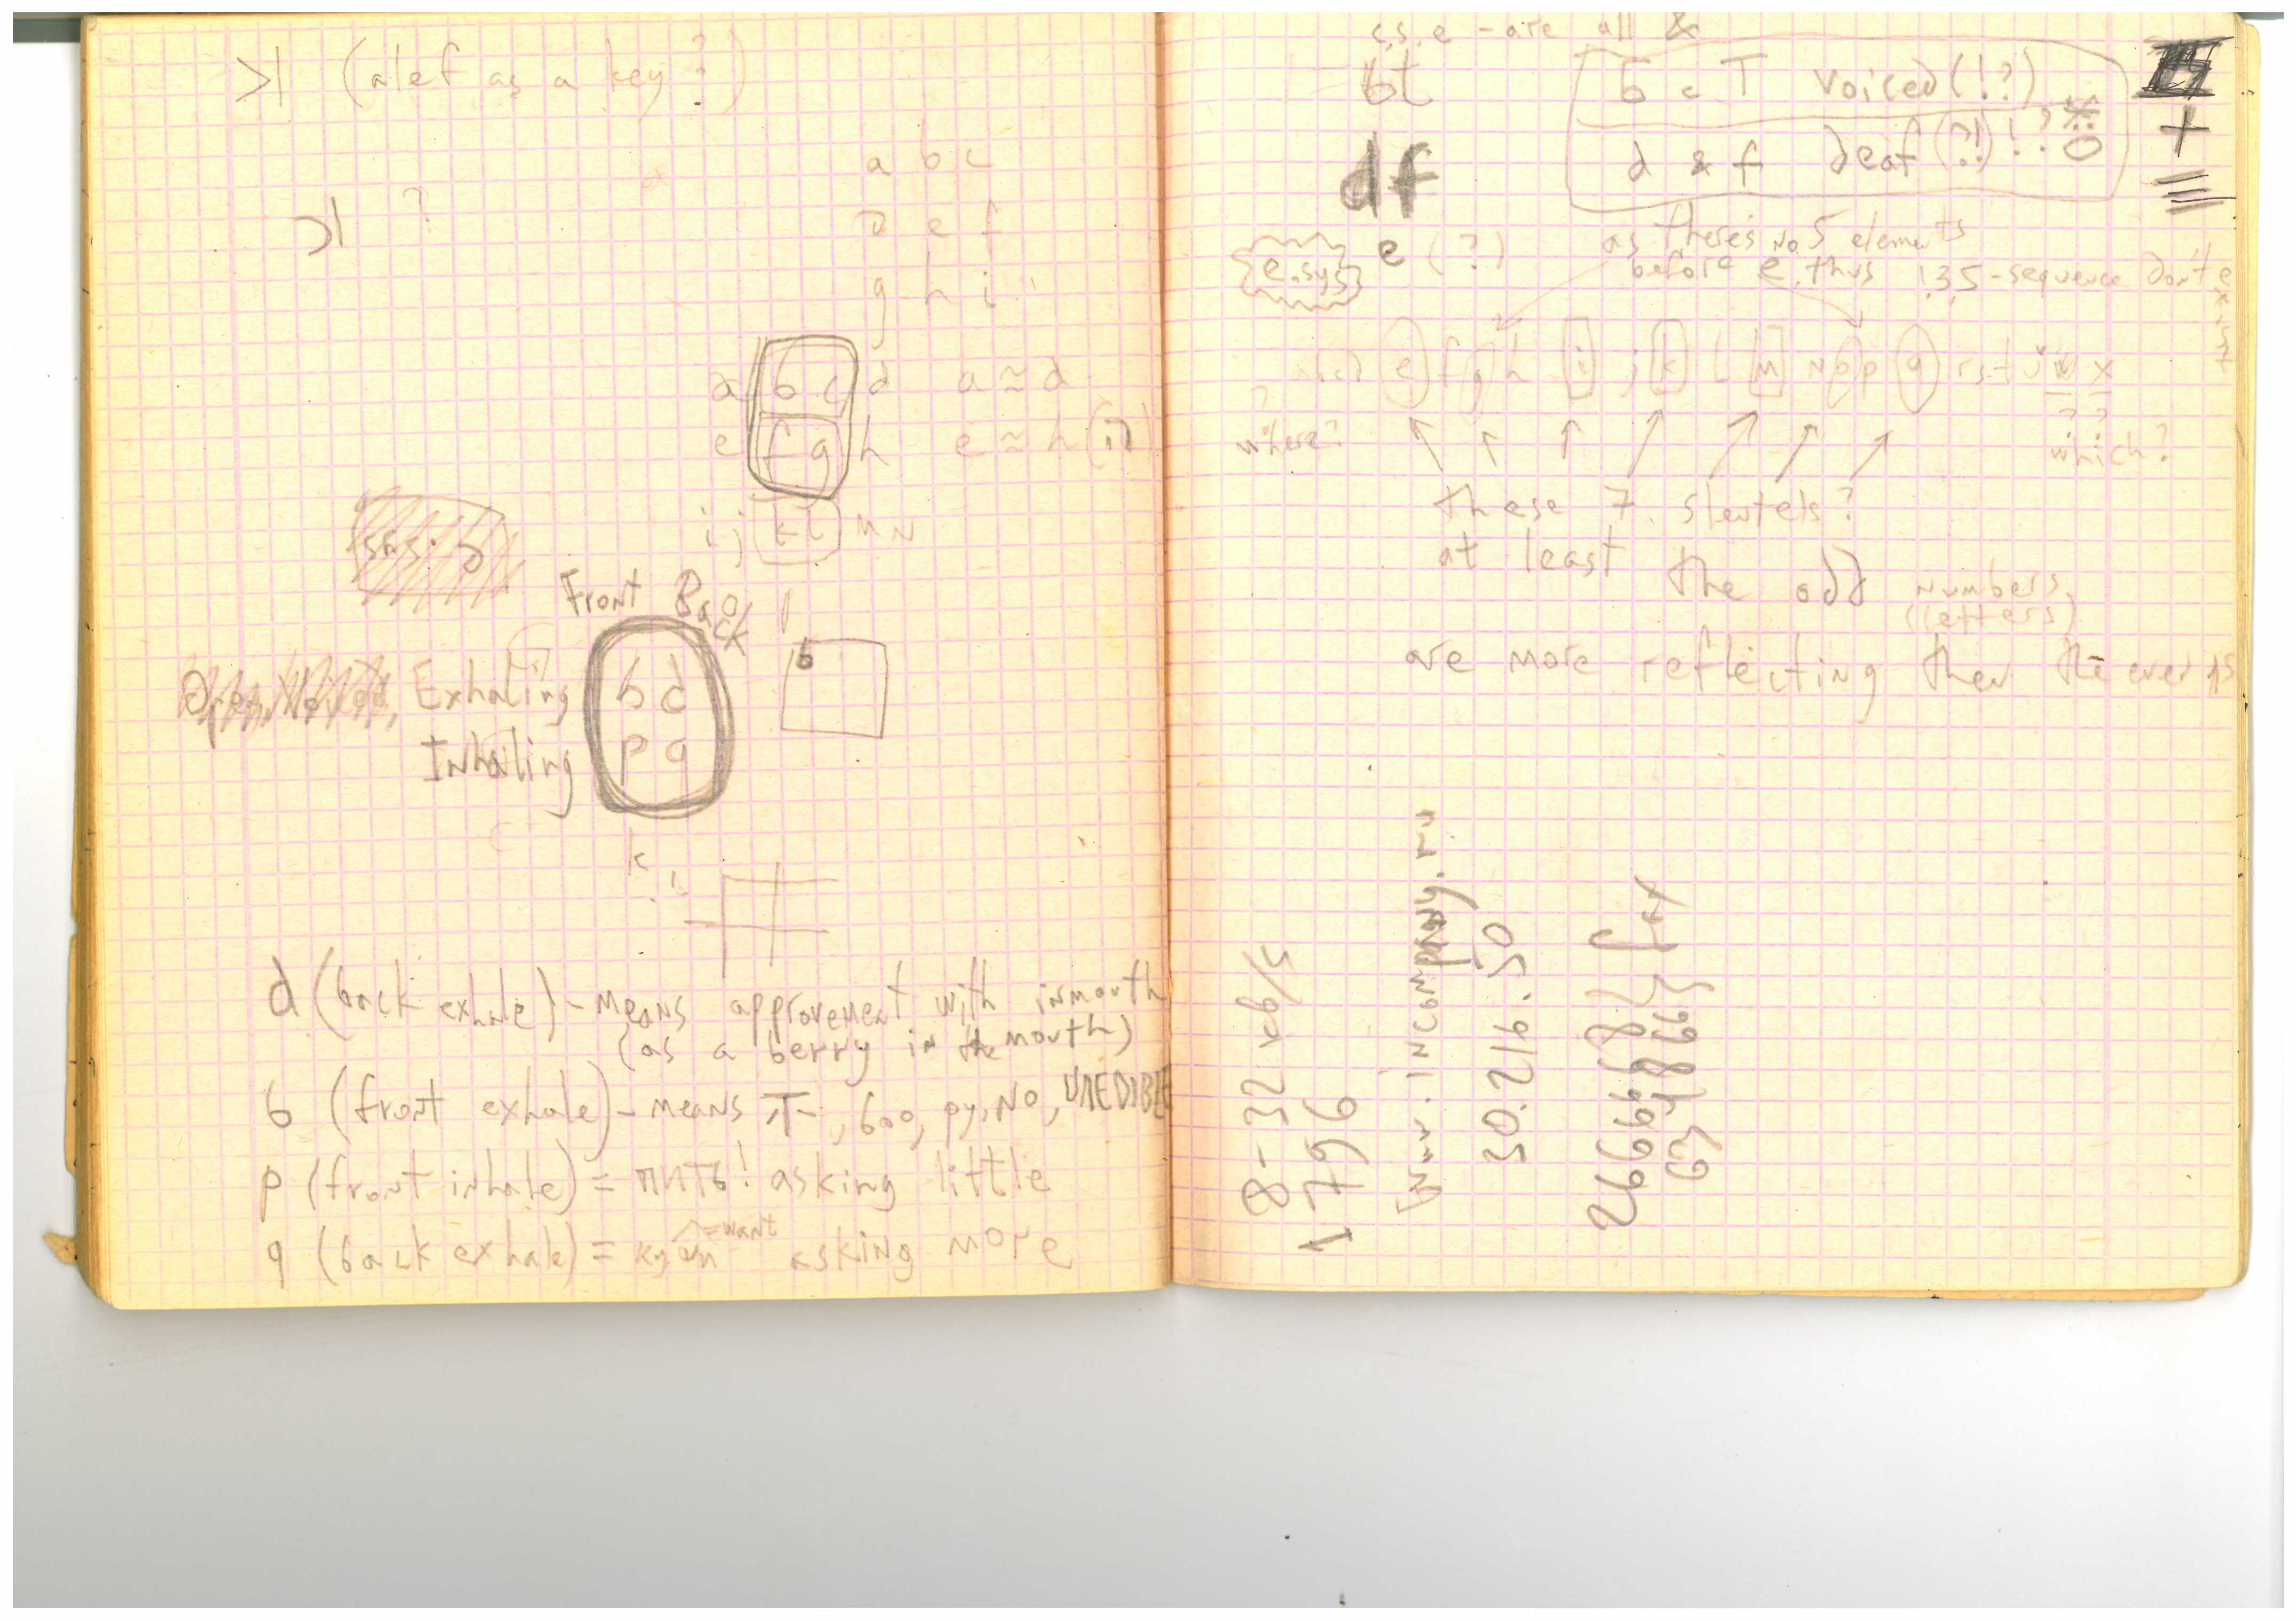 (alef as a key?)
a b c
?
d e f
g h i
a b c d a ≈ d
e f g h e ≈ h (i?)
i j k l m n
Front Back
b
Exhaling b d
Inhaling p q
k L
d (back exhale) - means approvement with inmouth
(as a berry in the mouth)
b (front exhale) - means boo, NO, UNEDIBLE
p (front inhale) = пить! asking little
=want
q (back exhale) = asking more
c.s.e - are all &
bt
b c T voiced (!?)
df
d & f deaf (?!) !?
+
e.sys
e (?)
as there's no 5 elements
before e, thus 135-sequence don't exist
e f g h i j k l m n o p q r s t u v x
? where?
? ? which?
these 7 sleutels?
at least the odd numbers
(letters)
are more reflecting then the even
8-32 kb/s
1796
www.incompany.ru
50.216.50
fax